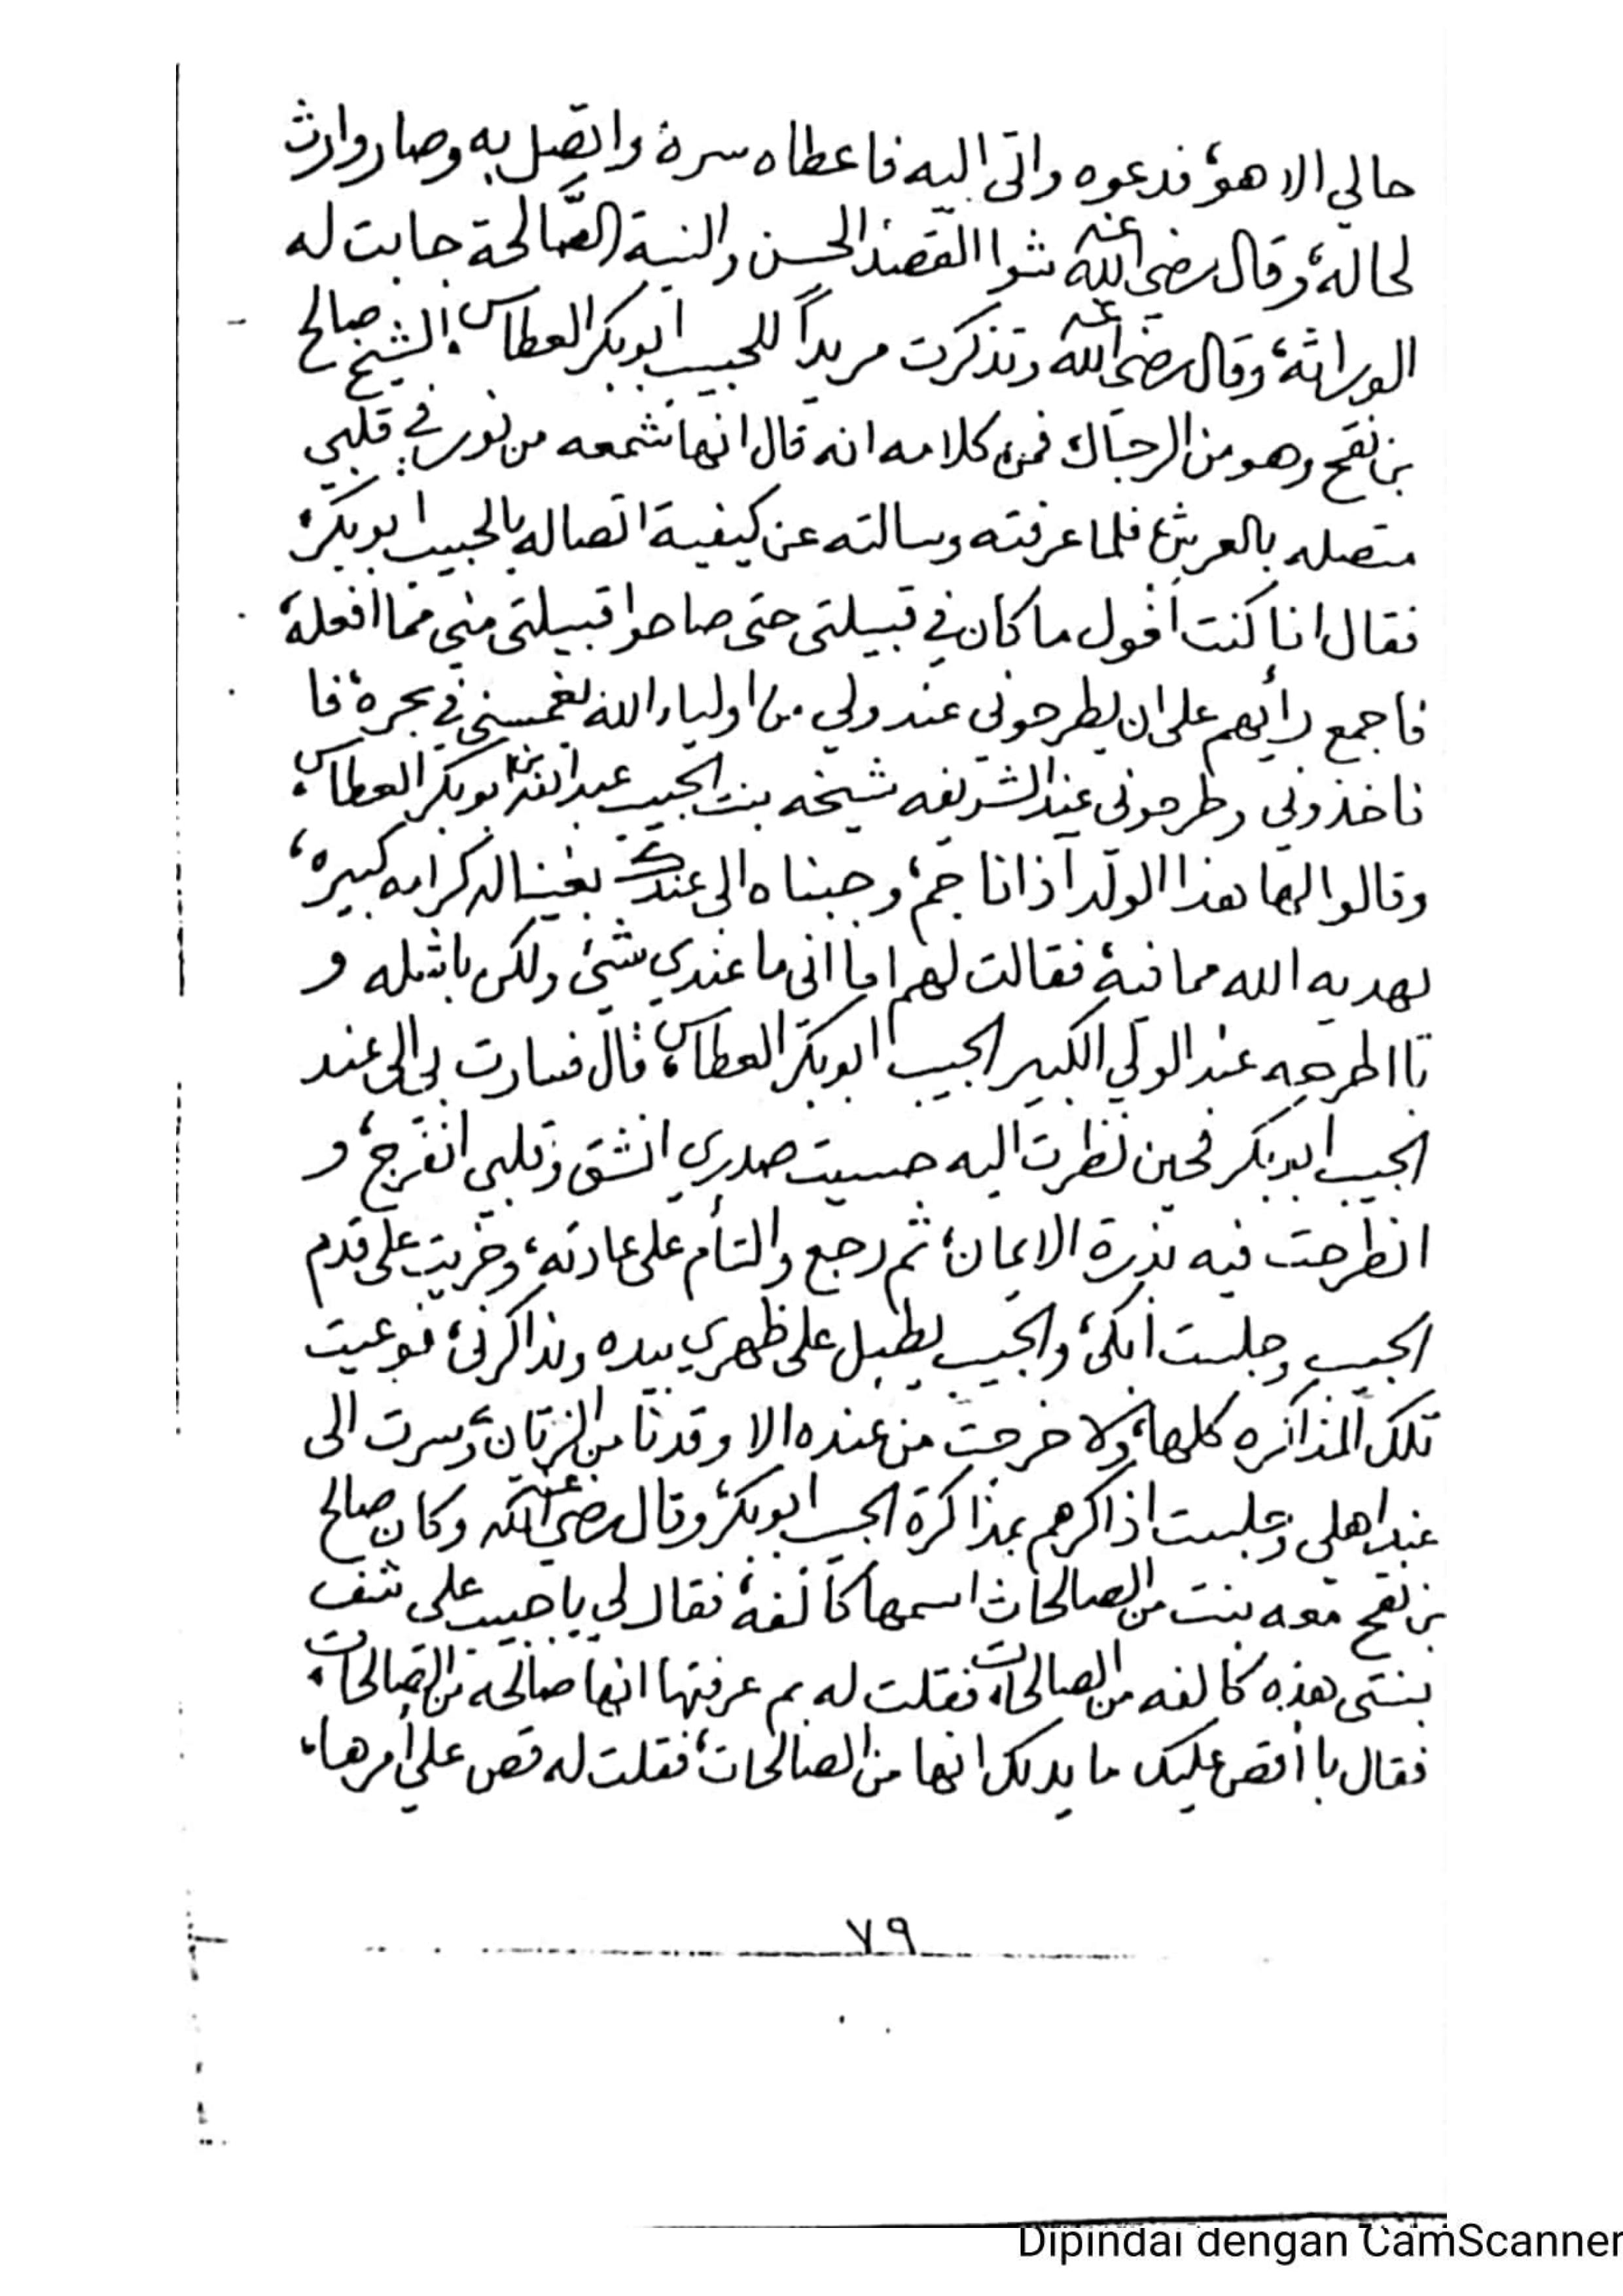 حالي الا هو، فدعوه واتى اليه فاعطاه سره واتصل به وصار وارث
لحاله، وقال رضي الله عنه شوا القصد الحسن والنية الصَّالحة جابت له
الوراثة، وقال رضي الله عنه وتذكرت مريداً للحبيب ابوبكر العطاس، الشيخ صالح
بن نقح وهو من الرجال فمن كلامه انه قال انها شمعه من نور في قلبي
متصله بالعرش، فلما عرفته وسالته عن كيفية اتصاله بالحبيب ابوبكر،
فقال انا كنت أغول ما كان في قبيلتي حتى صاحوا قبيلتي مني مما افعله،
فاجمع رأيهم على ان يطرحوني عند ولي من اولياء الله يغمسني في بحره، فا
ناخذوني وطرحوني عند الشريفه شيخه بنت الحبيب عبدالله بن ابوبكر العطاس،
وقالوا لها هذا الولد آذانا جم، وجبناه الى عندك بغينا له كرامه كبيره،
يهديه الله مما فيه، فقالت لهم اما اني ما عندي شئ ولكن باشله و
با اطرحه عند الولي الكبير الحبيب ابوبكر العطاس، قال فسارت بي الى عند
الحبيب ابوبكر فحين نظرت اليه حسيت صدري انشق وقلبي انفرج، و
انطرحت فيه بذرة الايمان، ثم رجع والتأم على عادته، وخريت على قدم
الحبيب وجلست أبكي، والحبيب يطبل على ظهري بيده ويذاكرني، فوعيت
تلك المذاكره كلها، ولا خرجت من عنده الا وقدنا من الزيان، وسرت الى
عند اهلي وجلست اذاكرهم بمذاكرة الحبيب ابوبكر، وقال رضي الله عنه وكان صالح
بن نقح معه بنت من الصالحات اسمها كالفة، فقال لي يا حبيب علي شف
بنتي هذه كالفه من الصالحات، فقلت له بم عرفتها انها صالحه من الصالحات،
فقال با أقص عليك ما يدلك انها من الصالحات، فقلت له قص علي أمرها،
٧٩
Dipindai dengan CamScanner